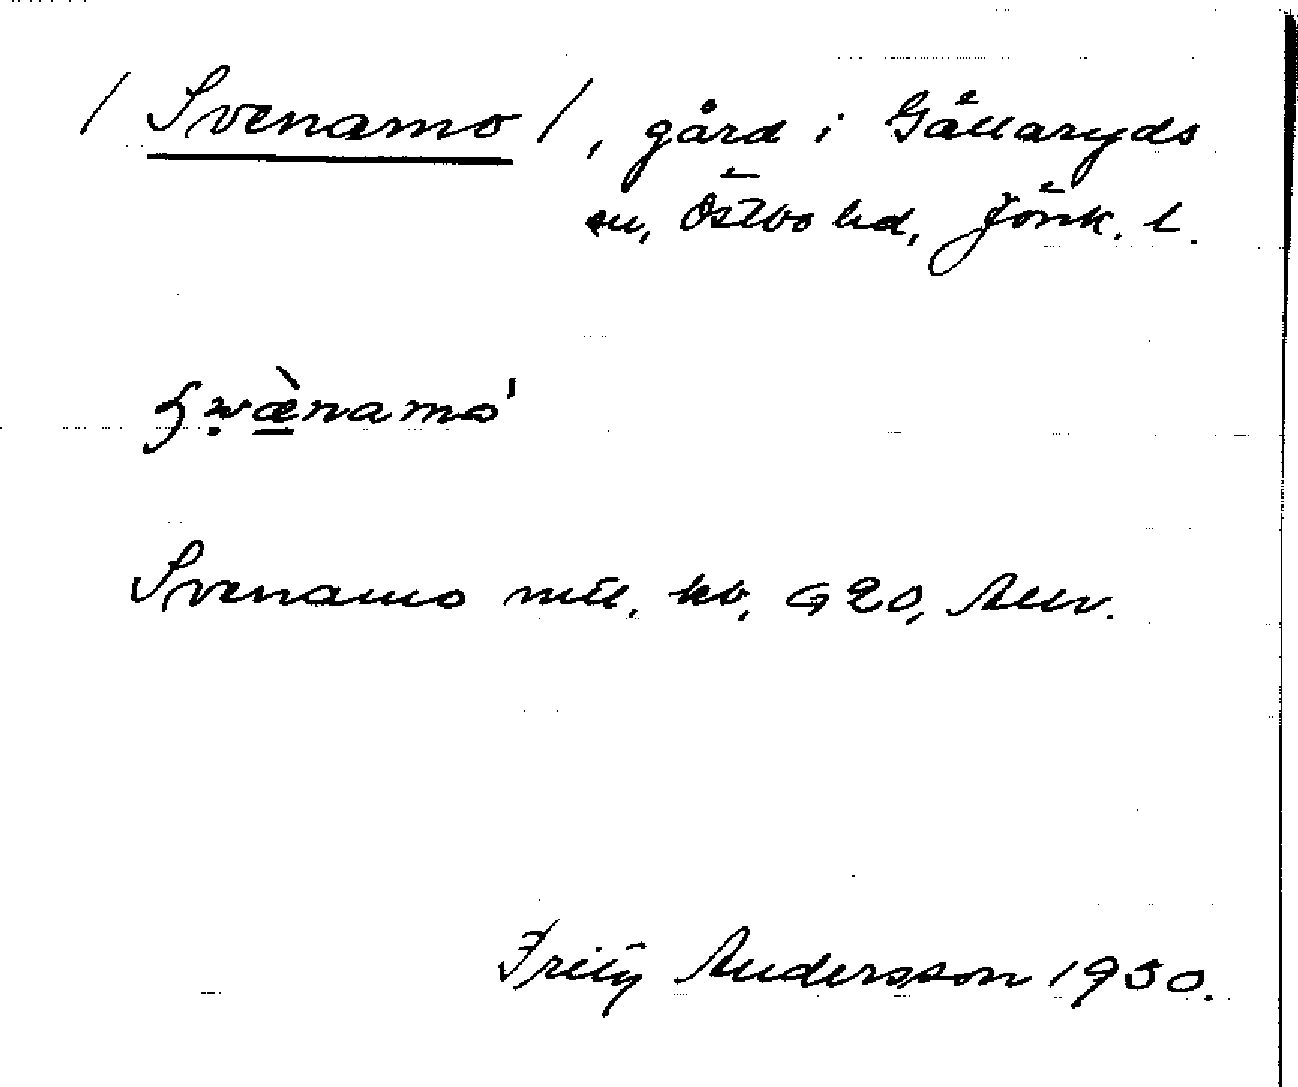 / Svenamo /, gård i Gällaryds
sn, Östbo hd, Jönk. l.
Svenamo mtl. kb, G 20, Allv.
Fritz Andersson 1930.